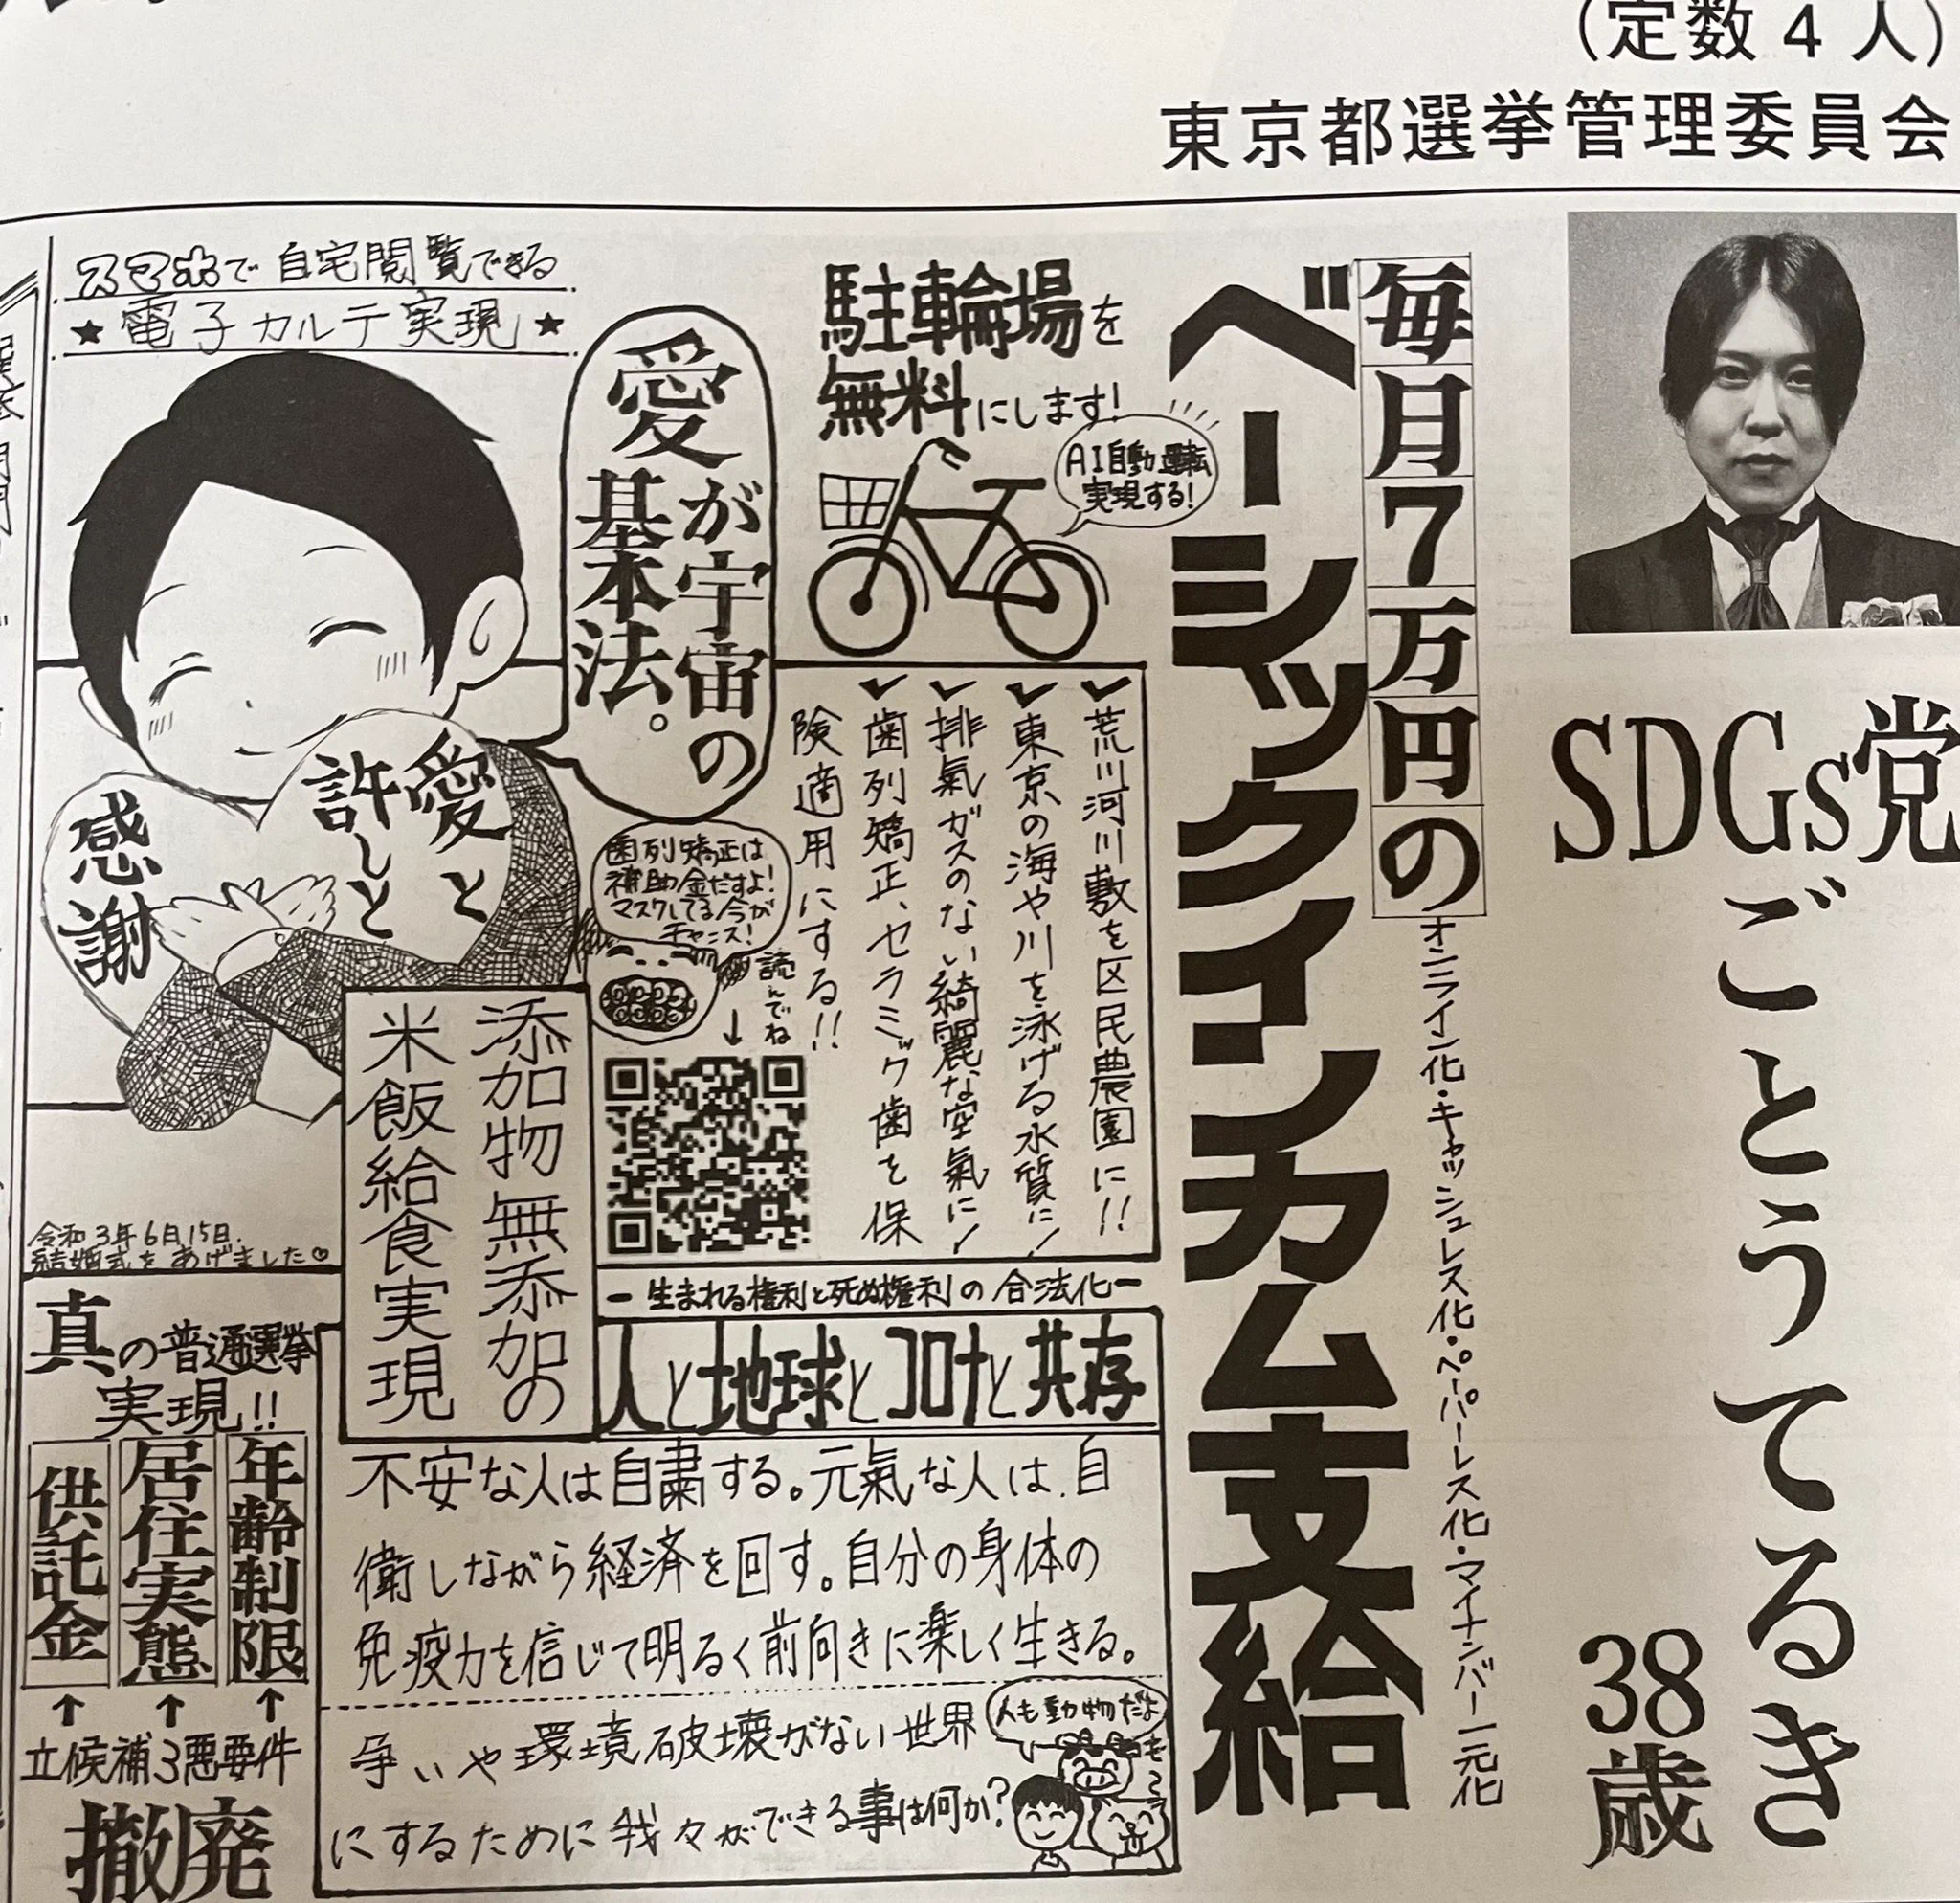 （定数４人）
東京都選挙管理委員会
SDGs党
ごとうてるき
38歳
毎月7万円の
ベーシックインカム支給
オンライン化・キャッシュレス化・ペーパーレス化・マイナンバー一元化
駐輪場を
無料にします!
AI自動運転
実現する!
✓荒川河川敷を区民農園に!!
✓東京の海や川を泳げる水質に!
✓排氣ガスのない綺麗な空氣に!
✓歯列矯正、セラミック歯を保
険適用にする!!
スマホで自宅閲覧できる
★電子カルテ実現★
愛が宇宙の
基本法。
愛と
許しと
感謝
歯列矯正は
補助金だすよ!
マスクしてる今が
チャンス!
読んでね
↓
添加物無添加の
米飯給食実現
令和3年6月15日.
結婚式をあげました♡
ー生まれる権利と死ぬ権利の合法化ー
人と地球とコロナと共存
不安な人は自粛する。元氣な人は、自
衛しながら経済を回す。自分の身体の
免疫力を信じて明るく前向きに楽しく生きる。
争いや環境破壊がない世界
にするために我々ができる事は何か?
人も動物だよ
真の普通選挙
実現!!
年齢制限
居住実態
供託金
↑ ↑ ↑
立候補3悪要件
撤廃